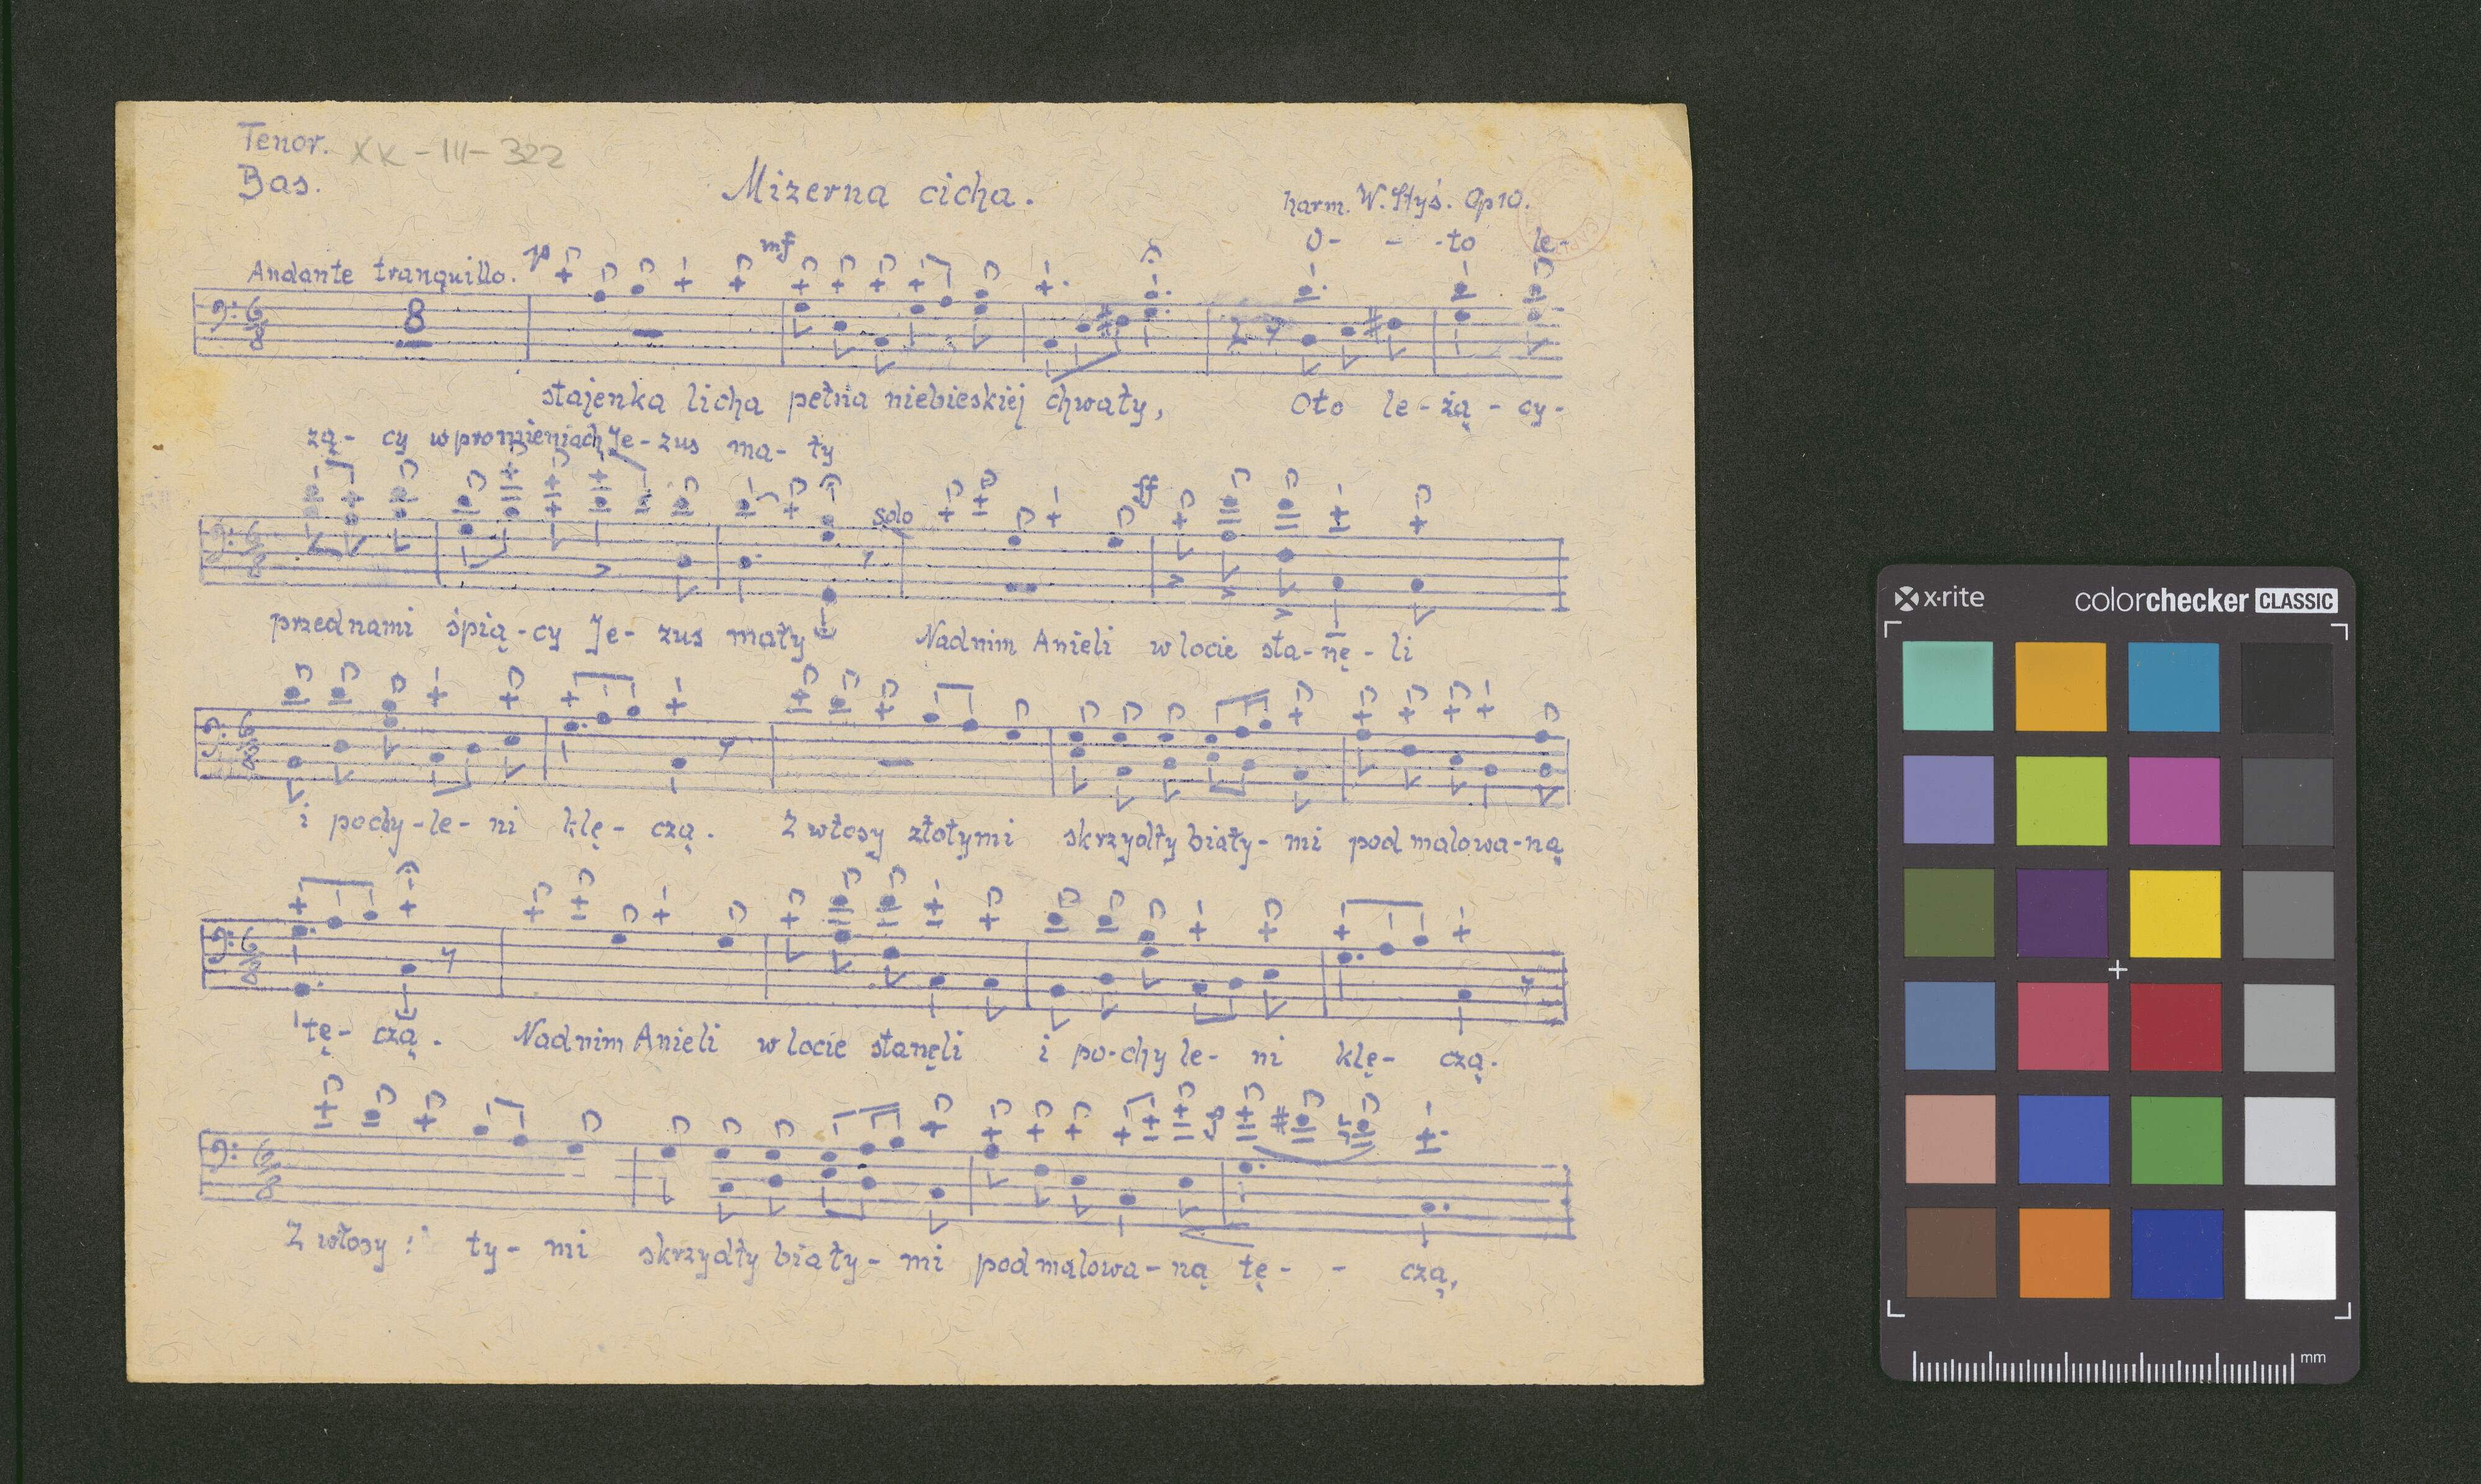 Tenor. XK-III-322
Bas.
Mizerna cicha.
harm. W. Styś. Op 10.
O- - -to le-
Andante tranquillo. p mf
6 8 8
stajenka licha pełna niebieskiej chwały, Oto le-żą-cy-
żą- cy w promieniach Je-zus ma-ły
solo ff
6 8
przed nami śpią-cy Je- zus mały Nad nim Anieli w locie sta-nę-li
6 8
i pochy-le-ni klę-czą. Z włosy złotymi skrzydły biały-mi pod malowa-ną
6 8
tę- czą. Nad nim Anieli w locie stanęli i po-chy le- ni klę- czą.
6 8
Z włosy ty- mi skrzydły biały-mi pod malowa-ną tę- - czą,
x-rite colorchecker CLASSIC
mm